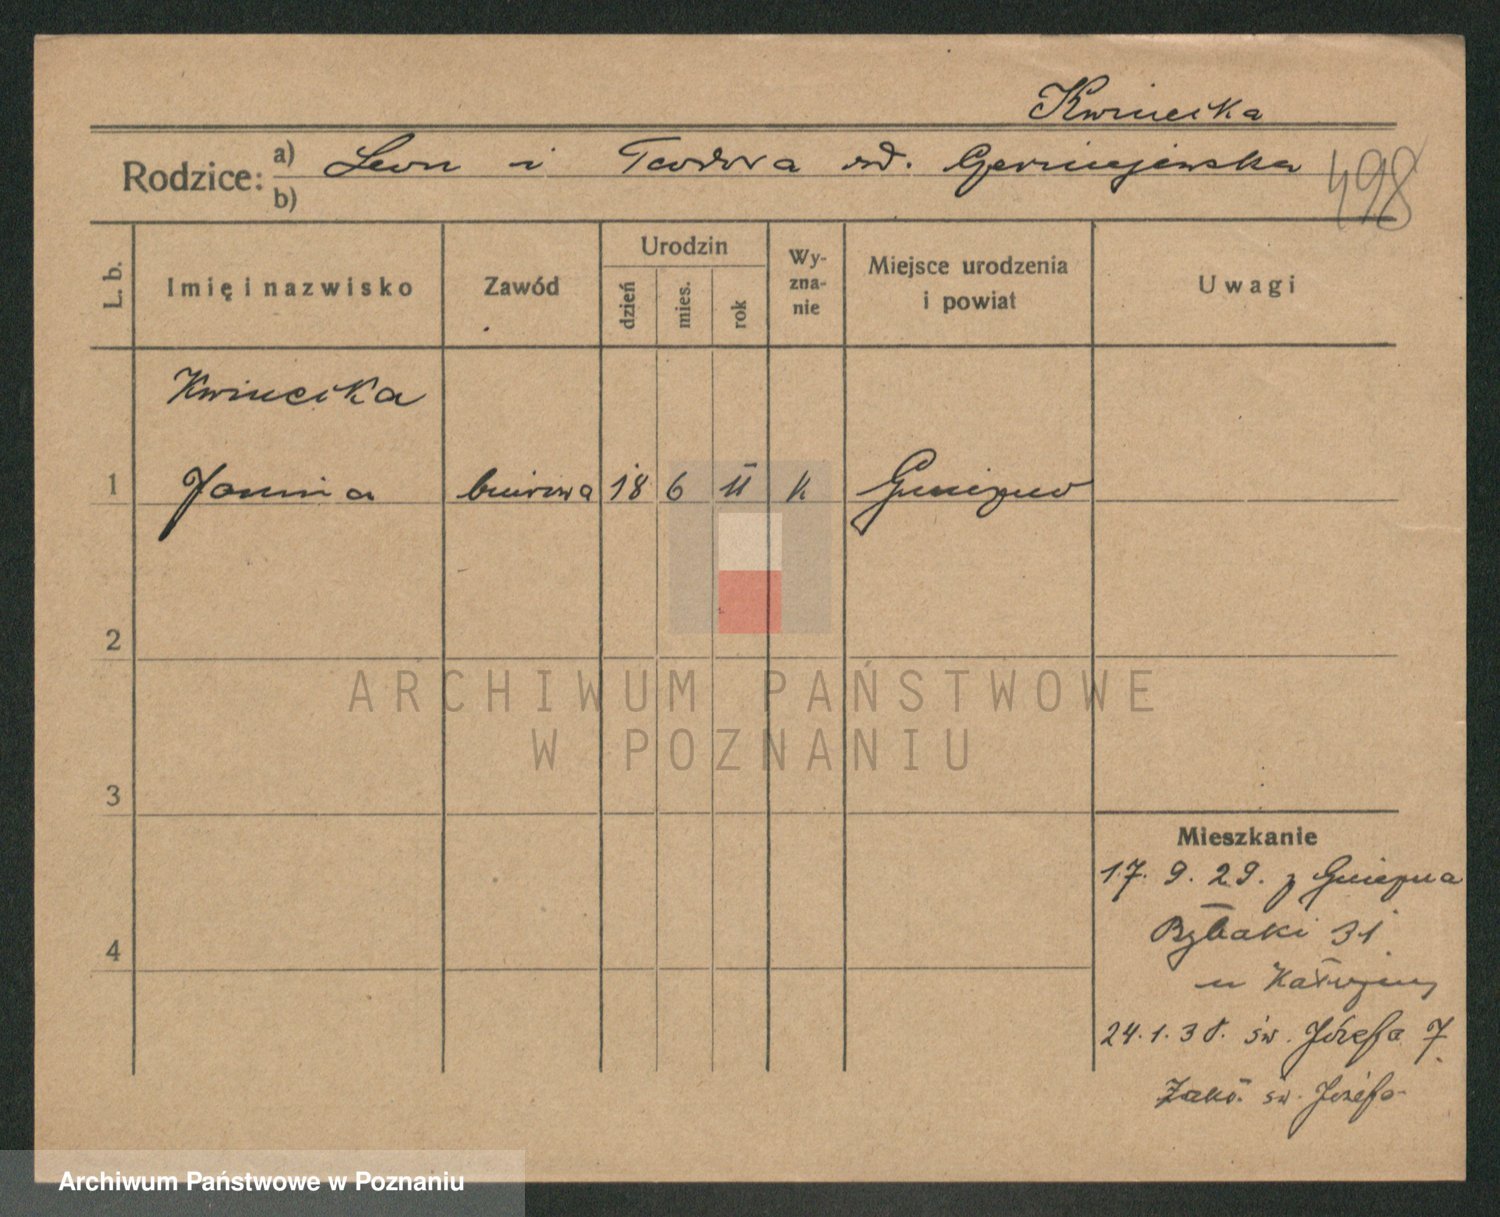 Kwiecika
Rodzice: a) Leon i Teodora rod.
b)
498
L. b. Imię i nazwisko Zawód Urodzin dzień mies. rok Wy-zna-nie Miejsce urodzenia i powiat Uwagi
Kwiecika
1 Janina biurowa 18 6 11 k Gniezno
2
3
4
Mieszkanie
17. 9. 29. z Gniezna
Rybaki 31
u
24. 1. 30. św. Józefa 7
św. Józefa
ARCHIWUM PAŃSTWOWE
W POZNANIU
Archiwum Państwowe w Poznaniu